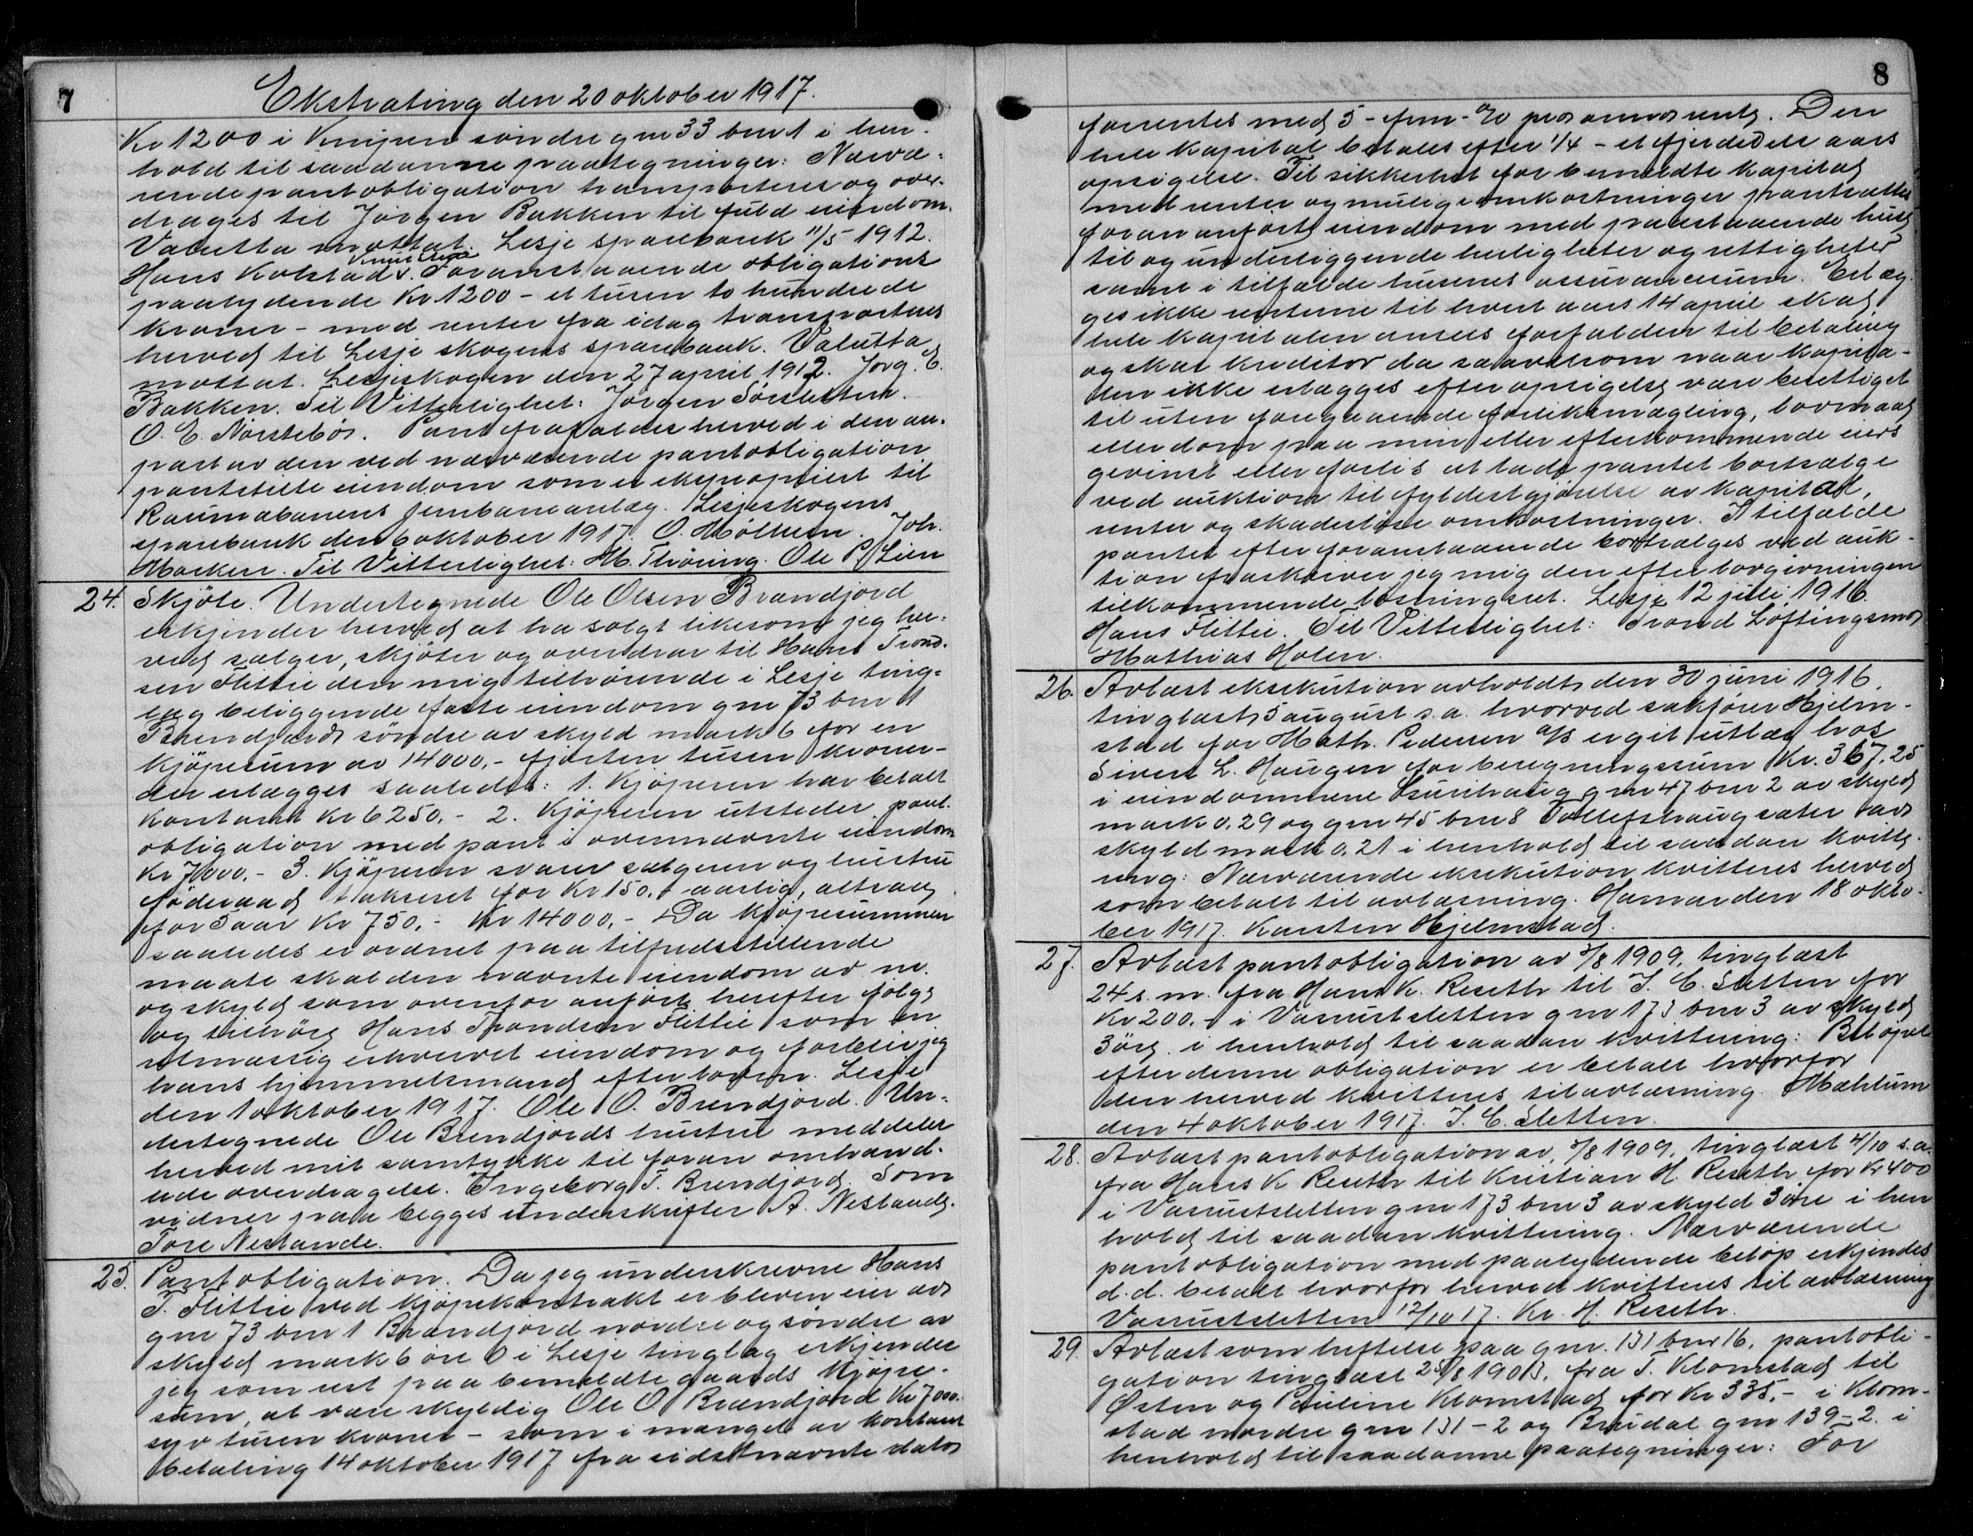 7
Ekstrating den 20 oktober 1917.
Kr 1200 i Knipen søndre gnr 33 bnr 1 i hen-
hold til saadanne paategninger: Nærvæ-
rende pantobligation transporteres og over-
drages til Jørgen Bakken til fuld eiendom.
Valutta mottat. Lesje sparebank 11/5 1912.
Hans Kolstad. Foranstaaende obligations
paalydende Kr 1200 - et tusen to hundrede
kroner - med renter fra idag transporteres
herved til Lesje skogens sparebank. Valutta
mottat. Lesjeskogen den 27 april 1912. Jørg. E.
Bakken. Til Vitterlighet: Jørgen
O. E. Norstebø. Pant frafaldes herved i den an-
part av den ved nærværende pantobligation
pantstilte eiendom som er ekspropriert til
Raumabanens jernbaneanlæg. Lesjeskogens
sparebank den 6 oktober 1917. O. Mølmen. Joh.
Morken. Til Vitterlighet: M. Thøring. Ole P. Lien
24. Skjøte. Undertegnede Ole Olsen Brændjord
erkjender herved at ha solgt likesom jeg her-
ved sælger, skjøter og overdrar til Hans Trond-
sen Flittie den mig tilhørende i Lesje ting-
lag beliggende faste eiendom gnr 73 bnr 1
Brændjord søndre av skyld mark 6 for en
kjøpesum av 14000,- fjorten tusen kroner-
der erlægges saaledes: 1. Kjøperen har betalt
kontant kr 6250.- 2. Kjøperen utsteder pant-
obligation med pant i ovennævnte eiendom
Kr 7000.- 3. Kjøperen svarer sælgeren og hustru
føderaad takseret for Kr 150.- aarlig, altsaa
for 5 aar Kr 750.- Kr 14000.- Da kjøpesummen
saaledes er ordnet paa tilfredsstillende
maate skal den nævnte eiendom av nr.
og skyld som ovenfor anført herefter følge
og tilhøre Hans Trondsen Flittie som en
retmæssig erhvervet eiendom og forblir jeg
hans hjemmelsmand efter loven. Lesje
den 1 oktober 1917. Ole O. Brendjord. Un-
dertegnede Ole Brendjords hustru meddeler
herved mit samtykke til foran omhand-
lede overdragelse. Ingeborg T. Brendjord. Som
vidner paa begges underskrifter A. Nestande.
Tore Nestande.
25. Pantobligation. Da jeg underskrevne Hans
T. Flittie ved kjøpekontrakt er bleven eier av
gnr 73 bnr 1 Brændjord nordre og søndre av
skyld mark 6 øre 0 i Lesje tinglag erkjender
jeg som rest paa bemeldte gaards kjøpe-
sum, at være skyldig Ole O. Brændjord Kr 7000.
syv tusen kroner - som i mangel av kontant
betaling 14 oktober 1917 fra sidstnævnte dato
8
forrentes med 5 - fem - % pro anno rente. Den
hele kapital betales efter 1/4 - et fjerdedels aars
opsigelse. Til sikkerhet for bemeldte kapital
med renter og mulige omkostninger pantsættes
foran anførte eiendom med paastaaende huse
til og underliggende herligheter og rettigheter
samt i tilfælde husenes assurancesum. Erlæg-
ges ikke renterne til hvert aars 14 april skal
hele kapitalen ansees forfalden til betaling
og skal kreditor da saavelsom naar kapita-
len ikke erlægges efter opsigelse være berettiget
til uten foregaaende forliksmægling, lovmaal
eller dom paa min eller efterkommende eiers
gevinst eller forlis at lade pantet bortsælge
ved auktion til fyldestgjørelse av kapital,
renter og skadesløse omkostninger. I tilfælde
pantet efter foranstaaende bortsælges ved auk-
tion fraskriver jeg mig den efter lovgivningen
tilkommende løsningsret. Lesje 12 juli 1916.
Hans Flittie. Til Vitterlighet: Trond Løftingsmo
Mathias Holen.
26. Avlæst eksekution avholdt den 30 juni 1916,
tinglæst 5 august s.a. hvorved sakfører Hjelm-
stad for Math. Pedersen A/S er git utlæg hos
Sivert L. Haugen for beregningssum Kr. 367.25
i eiendommene gnr 47 bnr 2 av skyld
mark 0.29 og gnr 45 bnr 8 Tollefshaugsæter av
skyld mark 0.21 i henhold til saadan kvitte-
ring: Nærværende eksekution kvitteres herved
som betalt til avlæsning. Hamar den 18 okto-
ber 1917. Karsten Hjelmstad.
27. Avlæst pantobligation av 3/8 1909, tinglæst
24 s.m. fra Hans K. Reseth til I. C. Sletten for
Kr 200.- i Vanustsletten gnr 173 bnr 3 av skyld
3 øre i henhold til saadan kvittering: Beløpet
efter denne obligation er betalt hvorfor
den herved kvitteres til avlæsning. Mæhlum
den 4 oktober 1917. I. C. Sletten.
28. Avlæst pantobligation av 3/8 1909, tinglæst 4/10 s.a.
fra Hans K Reseth til Kristian H. Reseth for Kr 400
i Vanustsletten gnr 173 bnr 3 av skyld 3 øre i hen
hold til saadan kvittering. Nærværende
pantobligation med paalydende beløp erkjendes
d.d. betalt hvorfor herved kvitteres til avlæsning
Vanustsletten 12/10 17. Kr. H. Reseth.
29. Avlæst som heftelse paa gnr. 131 bnr 16, pantobli-
gation tinglæst fra T. Klomstad til
Østen og Pauline Klomstad for Kr 335.- i Klom-
stad nordre gnr 131-2 og Bredal gnr 139-2. i
henhold til saadanne paategninger: For